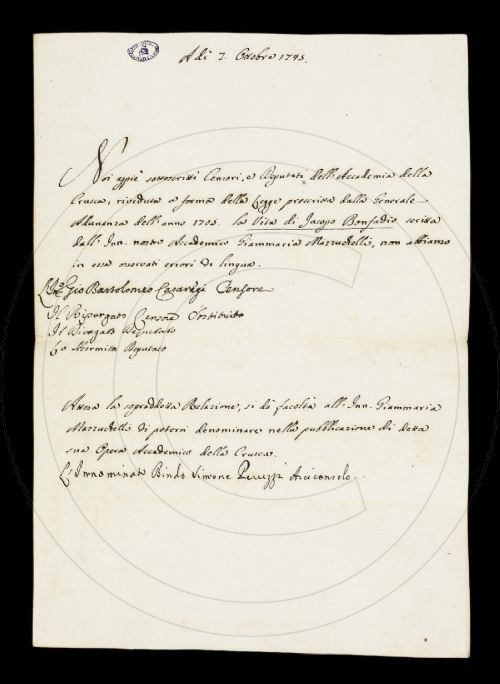 Adì 7. Ottobre 1745.
Noi appiè sottoscritti Censori, e Deputati dell'Accademia della
Crusca, riveduta a forma della Legge prescritta dalla Generale
Adunanza dell'anno 1705. la Vita di Jacopo Bonfadio scritta
dall'Inn. nostro Accademico Giammaria Mazzuchelli, non abbiamo
in essa osservati errori di lingua.
Gio Bartolomeo Casaregi Censore
Il Ripurgato Censore Sostituto
Il Divagato Deputato
Lo Schermito Deputato
Attesa la sopraddetta Relazione, si dà facoltà all'Inn. Giammaria
Mazzuchelli di potersi denominare nella pubblicazione di detta
sua Opera Accademico della Crusca.
L'Innominato Bindo Simone Peruzzi Arciconsolo